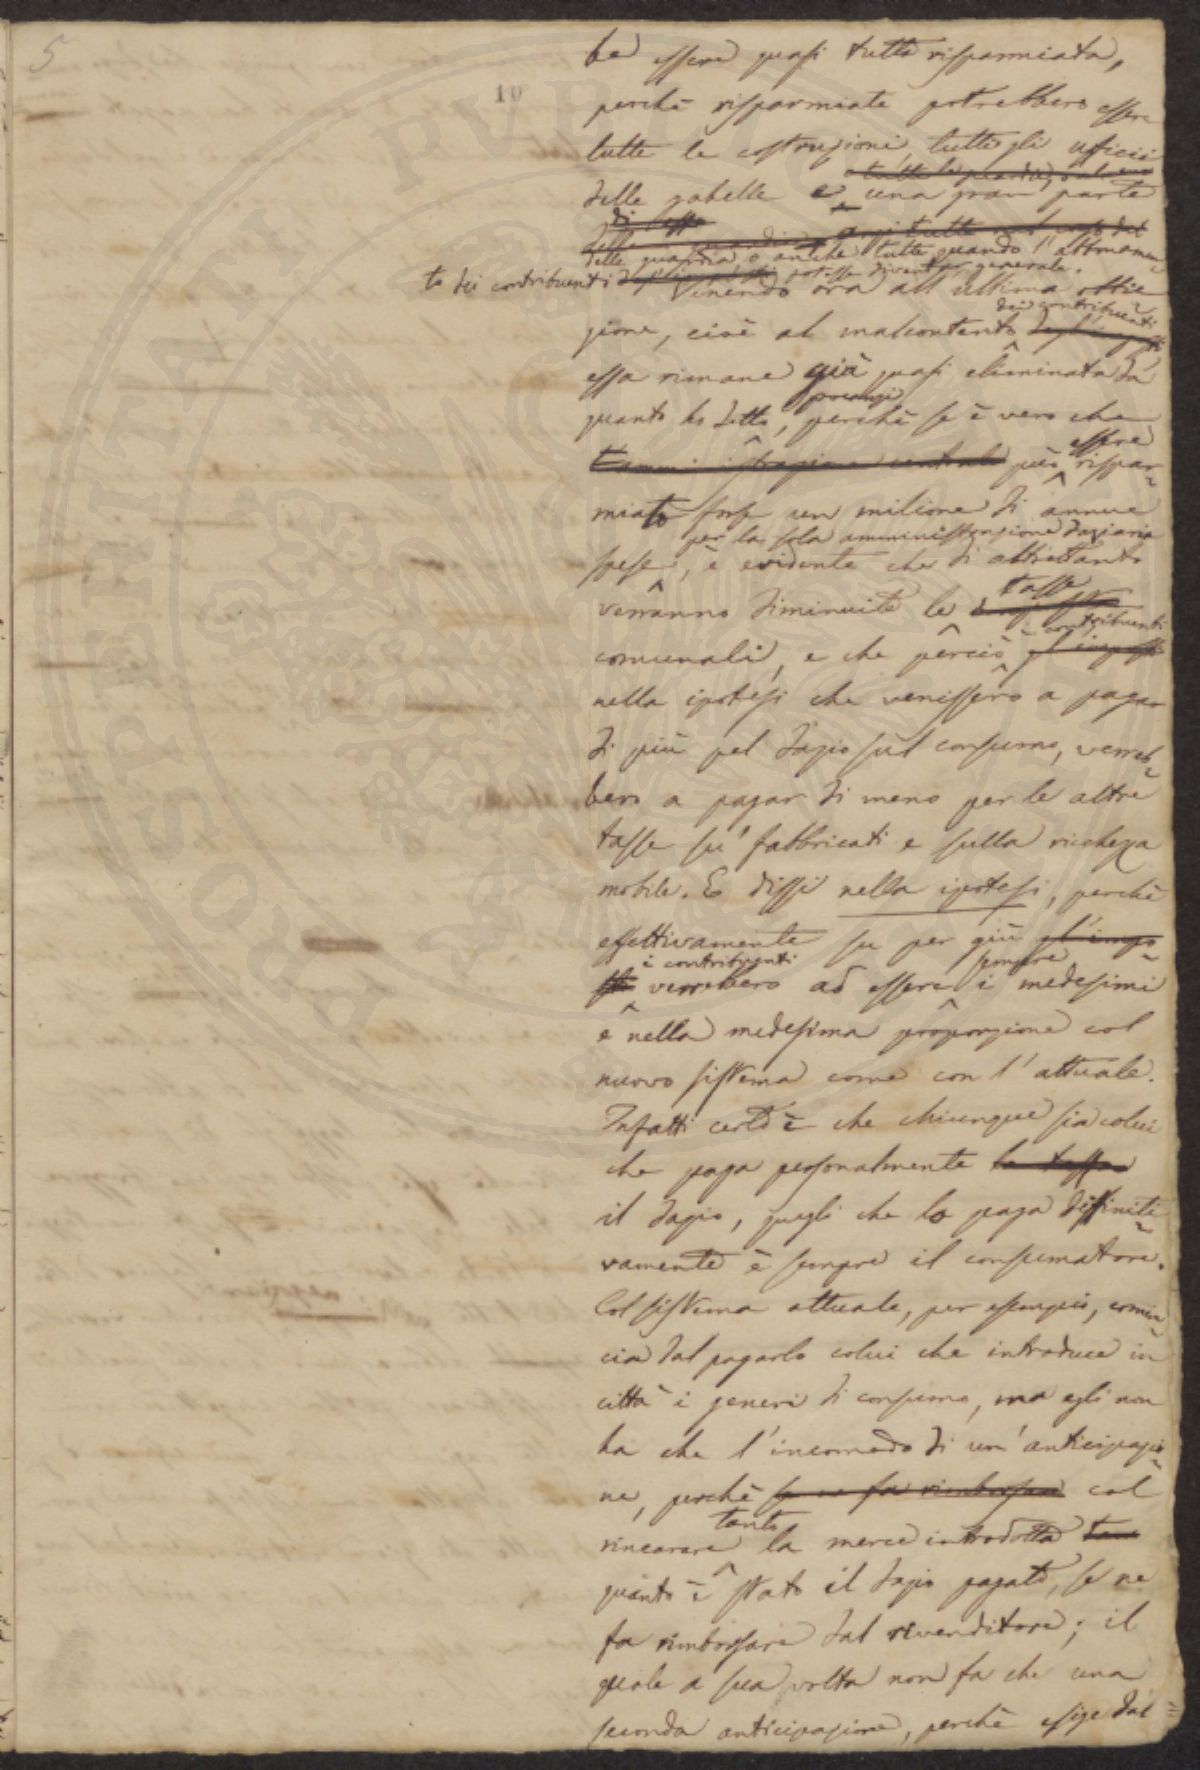 5
10
be essere quasi tutta risparmiata,
perchè risparmiate potrebbero essere
tutte le costruzioni, tutti gli ufficii
delle gabelle e una gran parte
di esse
delle guardie, o anche tutte quando l'abbonamen=
to dei contribuenti potesse diventar generale.
Venendo ora all'ultima obbie
dei contribuenti
zione, cioè al malcontento
essa rimane già quasi eliminata da
poc'anzi
quanto ho detto, perchè se è vero che
essere
l'amministrazione centrale può rispar=
miato forse un milione di annue
per la sola amministrazione daziaria
spese, è evidente che di altrettanto
tasse
verranno diminuite le
i contribuenti
comunali, e che perciò gl'imposti
nella ipotesi che venissero a pagar
di più pel dazio sul consumo, verreb=
bero a pagar di meno per le altre
tasse su' fabbricati e sulla ricchezza
mobile. E dissi nella ipotesi, perchè
effettivamente su per giù gl'impo=
i contribuenti sempre
sti verrebbero ad essere i medesimi
e nella medesima proporzione col
nuovo sistema come con l'attuale.
Infatti certo è che chiunque sia colui
che paga personalmente la tassa
il dazio, quegli che lo paga diffiniti=
vamente è sempre il consumatore.
Col sistema attuale, per esempio, comin=
cia dal pagarlo colui che introduce in
città i generi di consumo, ma egli non
ha che l'incomodo di un'anticipazio=
ne, perchè se ne fa rimborsare col
tanto
rincarare la merce introdotta tan
quanto è stato il dazio pagato, se ne
fa rimborsare dal rivenditore; il
quale a sua volta non fa che una
seconda anticipazione, perchè esige dal=